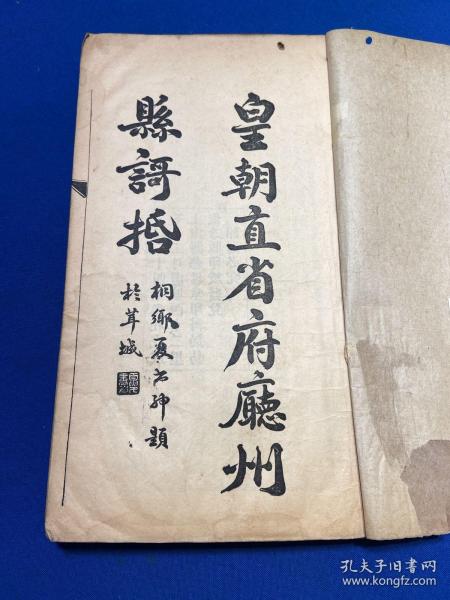 皇朝直省府廳州
縣謌括
桐鄉夏

題
於茸城
孔夫子旧书网
www.kongfz.com